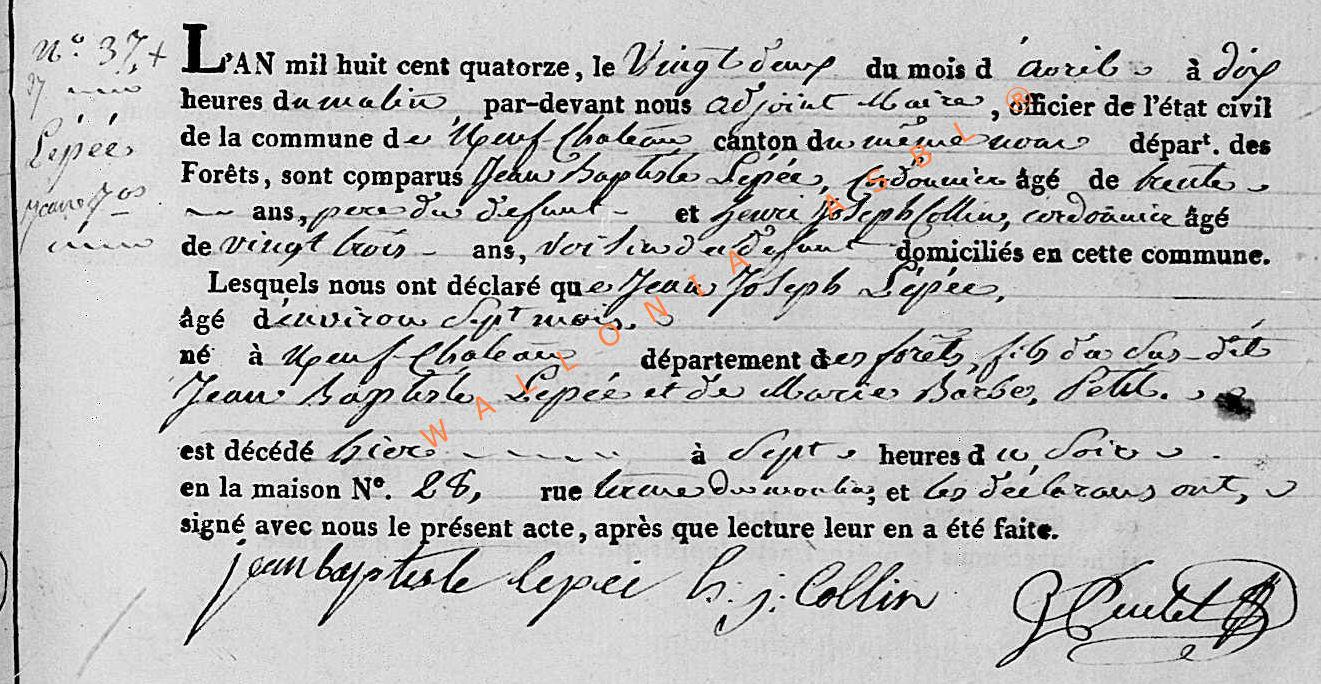 N.° 37 +
Lépée
jean Jos
L'AN mil huit cent quatorze, le Vingt deux du mois d'avril à dix
heures du matin par-devant nous adjoint Maire, officier de l'état civil
de la commune de Neuf Chateau canton du même nom départ. des
Forêts, sont comparus Jean Baptiste Lépée, Cordonnier âgé de trente
ans, pere du defunt et henri Joseph Collin, cordonnier âgé
de vingt trois ans, Voisin du defunt domiciliés en cette commune.
Lesquels nous ont déclaré que Jean Joseph Lépée,
âgé d'environ Sept mois.
né à Neuf-Chateau département des forêts, fils du sus-dit
Jean Baptiste Lepée et de Marie Barbe, Petit.
est décédé hier à Sept heures du Soir
en la maison N°. 28, rue du moulin, et les déclarans ont,
signé avec nous le présent acte, après que lecture leur en a été faite.
jean baptiste lepée h. j. Collin
WALLONIA ASBL ®